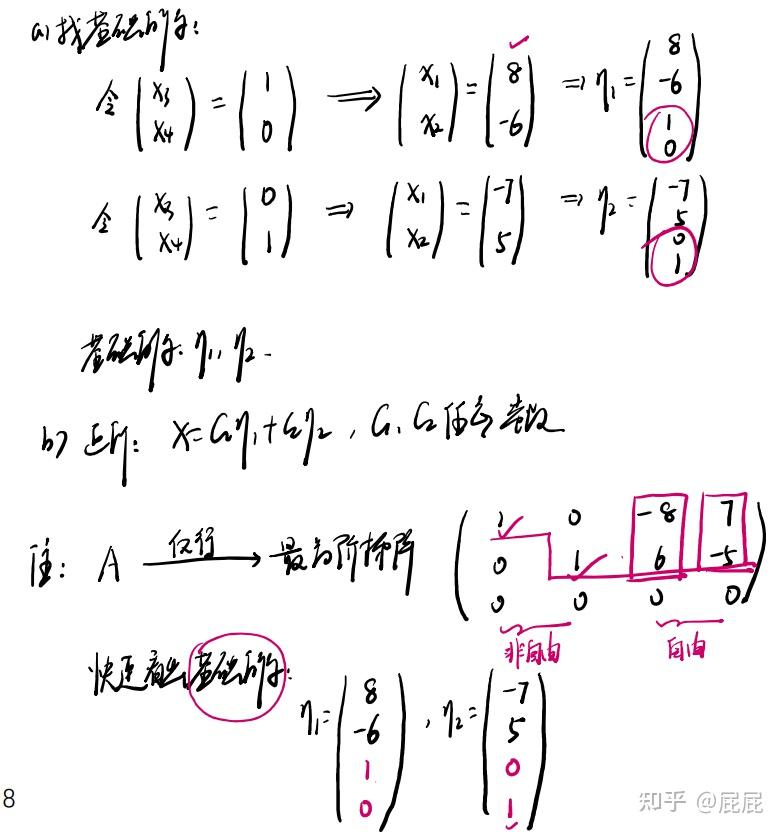 a) 找基础解系:
令 (x3 x4) = (1 0) ⟹ (x1 x2) = (8 -6) ⟹ η1 = (8 -6 1 0)
令 (x3 x4) = (0 1) ⟹ (x1 x2) = (-7 5) ⟹ η2 = (-7 5 0 1)
基础解系: η1, η2.
b) 通解: X = C1η1 + C2η2, C1, C2 任意常数
注: A 仅行 → 最简阶梯阵
1 0 -8 7
0 1 6 -5
0 0 0 0
非自由 自由
快速看出基础解系:
η1 = (8 -6 1 0), η2 = (-7 5 0 1)
8
知乎 @屁屁